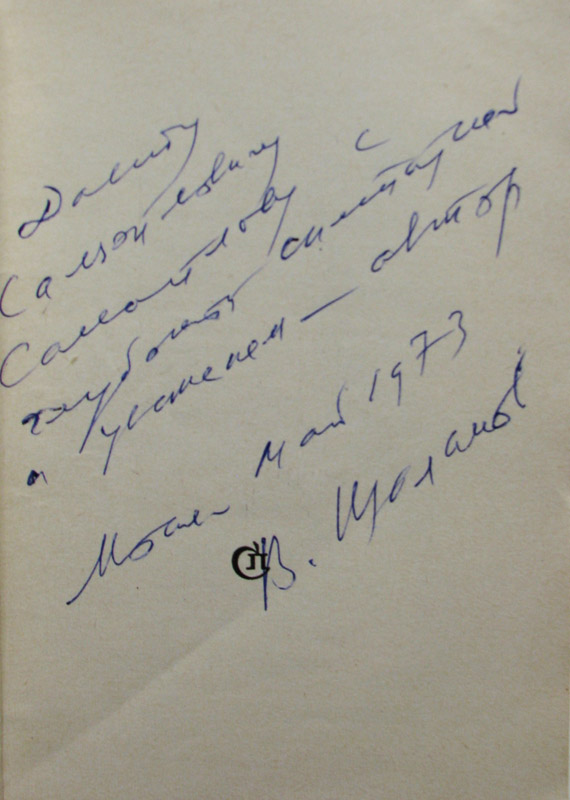 Давиду
Самойловичу
Самойлову с
глубокой симпатией
и уважением — автор
Москва май 1973
В. Шаламов
СП